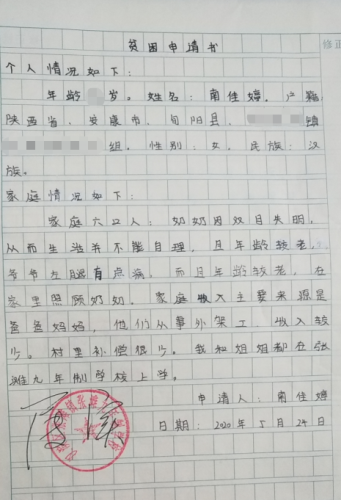 贫困申请书
个人情况如下:
年龄 岁。姓名:南佳婷。户籍
陕西省,安康市,旬阳县, 镇
组。性别:女。民族:汉
族。
家庭情况如下:
家庭六口人:奶奶因双目失明,
从而生活并不能自理,且年龄较老,
爷爷左腿有点病,而且年龄较老,在
家里照顾奶奶。家庭收入主要来源是
爸爸妈妈,他们从事外架工,收入较
少。村里补偿很少。我和姐姐都在张
滩九年制学校上学。
申请人:南佳婷
日期:2020年5月24日
修正